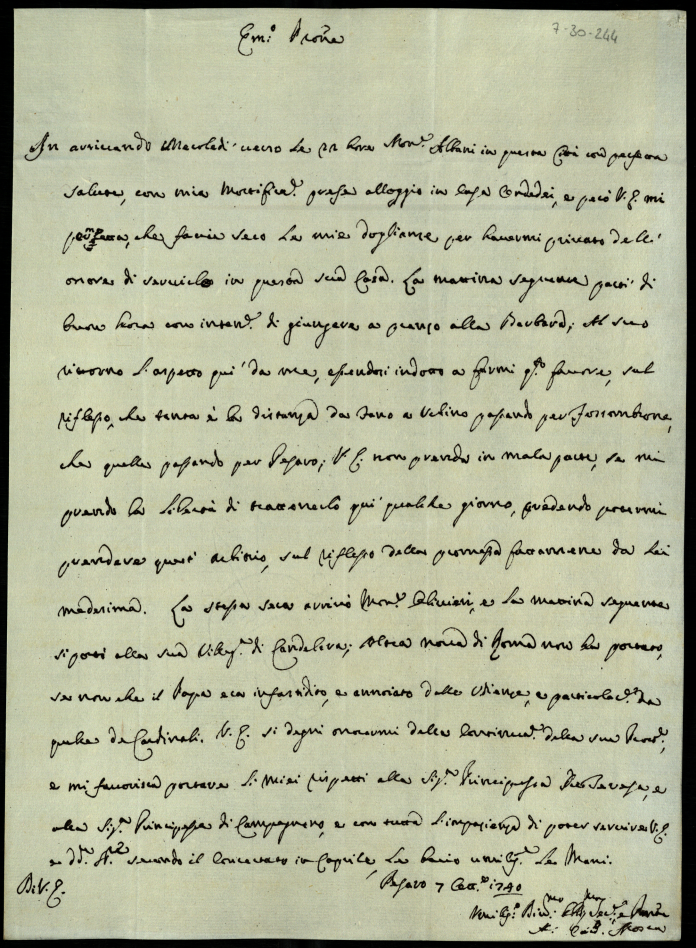 7-30-244
Em.º P̃rone
In arrivando Mercoledi' verso le 22 hore Mon.r Albani in questa Città con perfetta
salute, con mia Mortificaz.e prese alloggio in Casa, e però V. E. mi
permetta, che faccia seco le mie doglianze per havermi privato dell'
onore di servirlo in questa sua Casa. La mattina seguente partì di
buon hora con intenz.e di giungere a pranzo alla Barbara; Al suo
ritorno l'aspetto qui' da me, essendosi indotto a farmi q.to favore, sul
riflesso, che tanta è la distanza da Fano a Urbino passando per Fossombrone,
che quella passando per Pesaro; V. E. non prenda in mala parte, se mi
prendo la libertà di trattenerlo qui' qualche giorno, credendo potermi
prendere quest' arbitrio, sul riflesso della promessa fattamene da Lei
medesima. La stessa sera arrivò Mon.r Olivieri, e la mattina seguente
si portò alla sua Villeg.ra di Candelara; Altra novità di Roma non ha portato,
se non che il Papa era infastidito, e annoiato delle Udienze, e particolar.te da
quelle de Cardinali. V. E. si degni onorarmi della continuaz.e della sua Protez.e,
e mi favorisca portare li miei rispetti alla Sig.ra Principessa, e
alla Sig.ra Principessa di Campagnano, e con tutta l'impazienza di poter servire V. E.
e secondo il concertato in Caprile, Le bacio umilis.te Le Mani.
Di V. E. Pesaro 7 Ott.e 1740
Umilis.o Div.mo Obblig.mo Ser.re e Parente
A. Card. Mosca